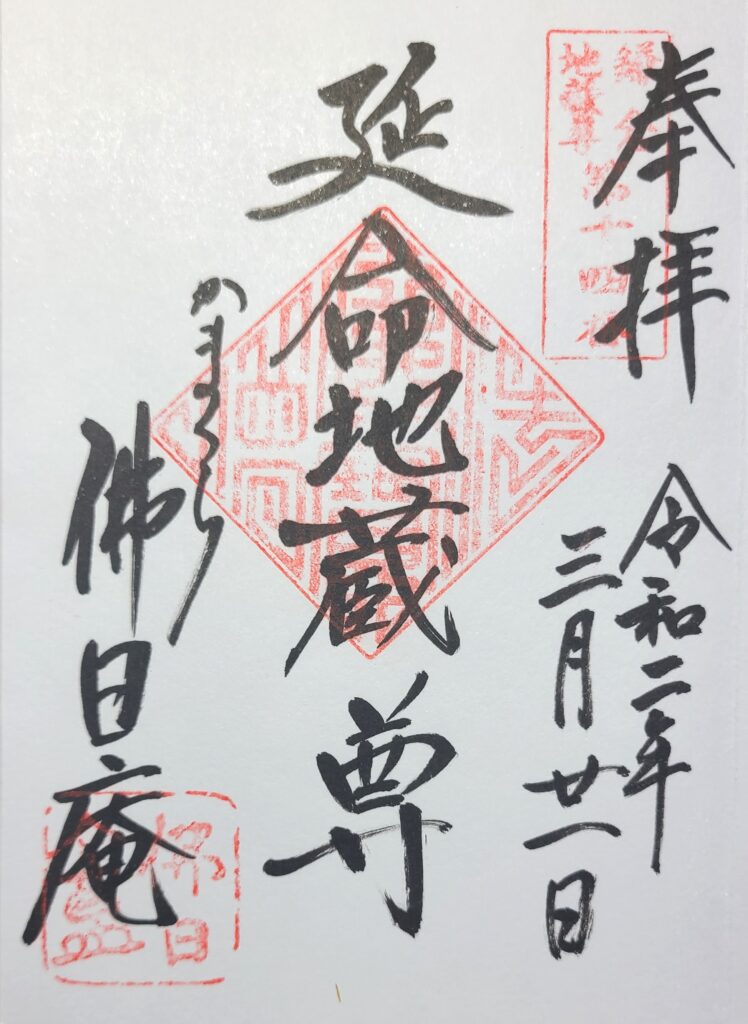 奉拝
令和二年
三月廿一日
延命地蔵尊
かまくら
佛日庵
地蔵尊 第十四
佛日